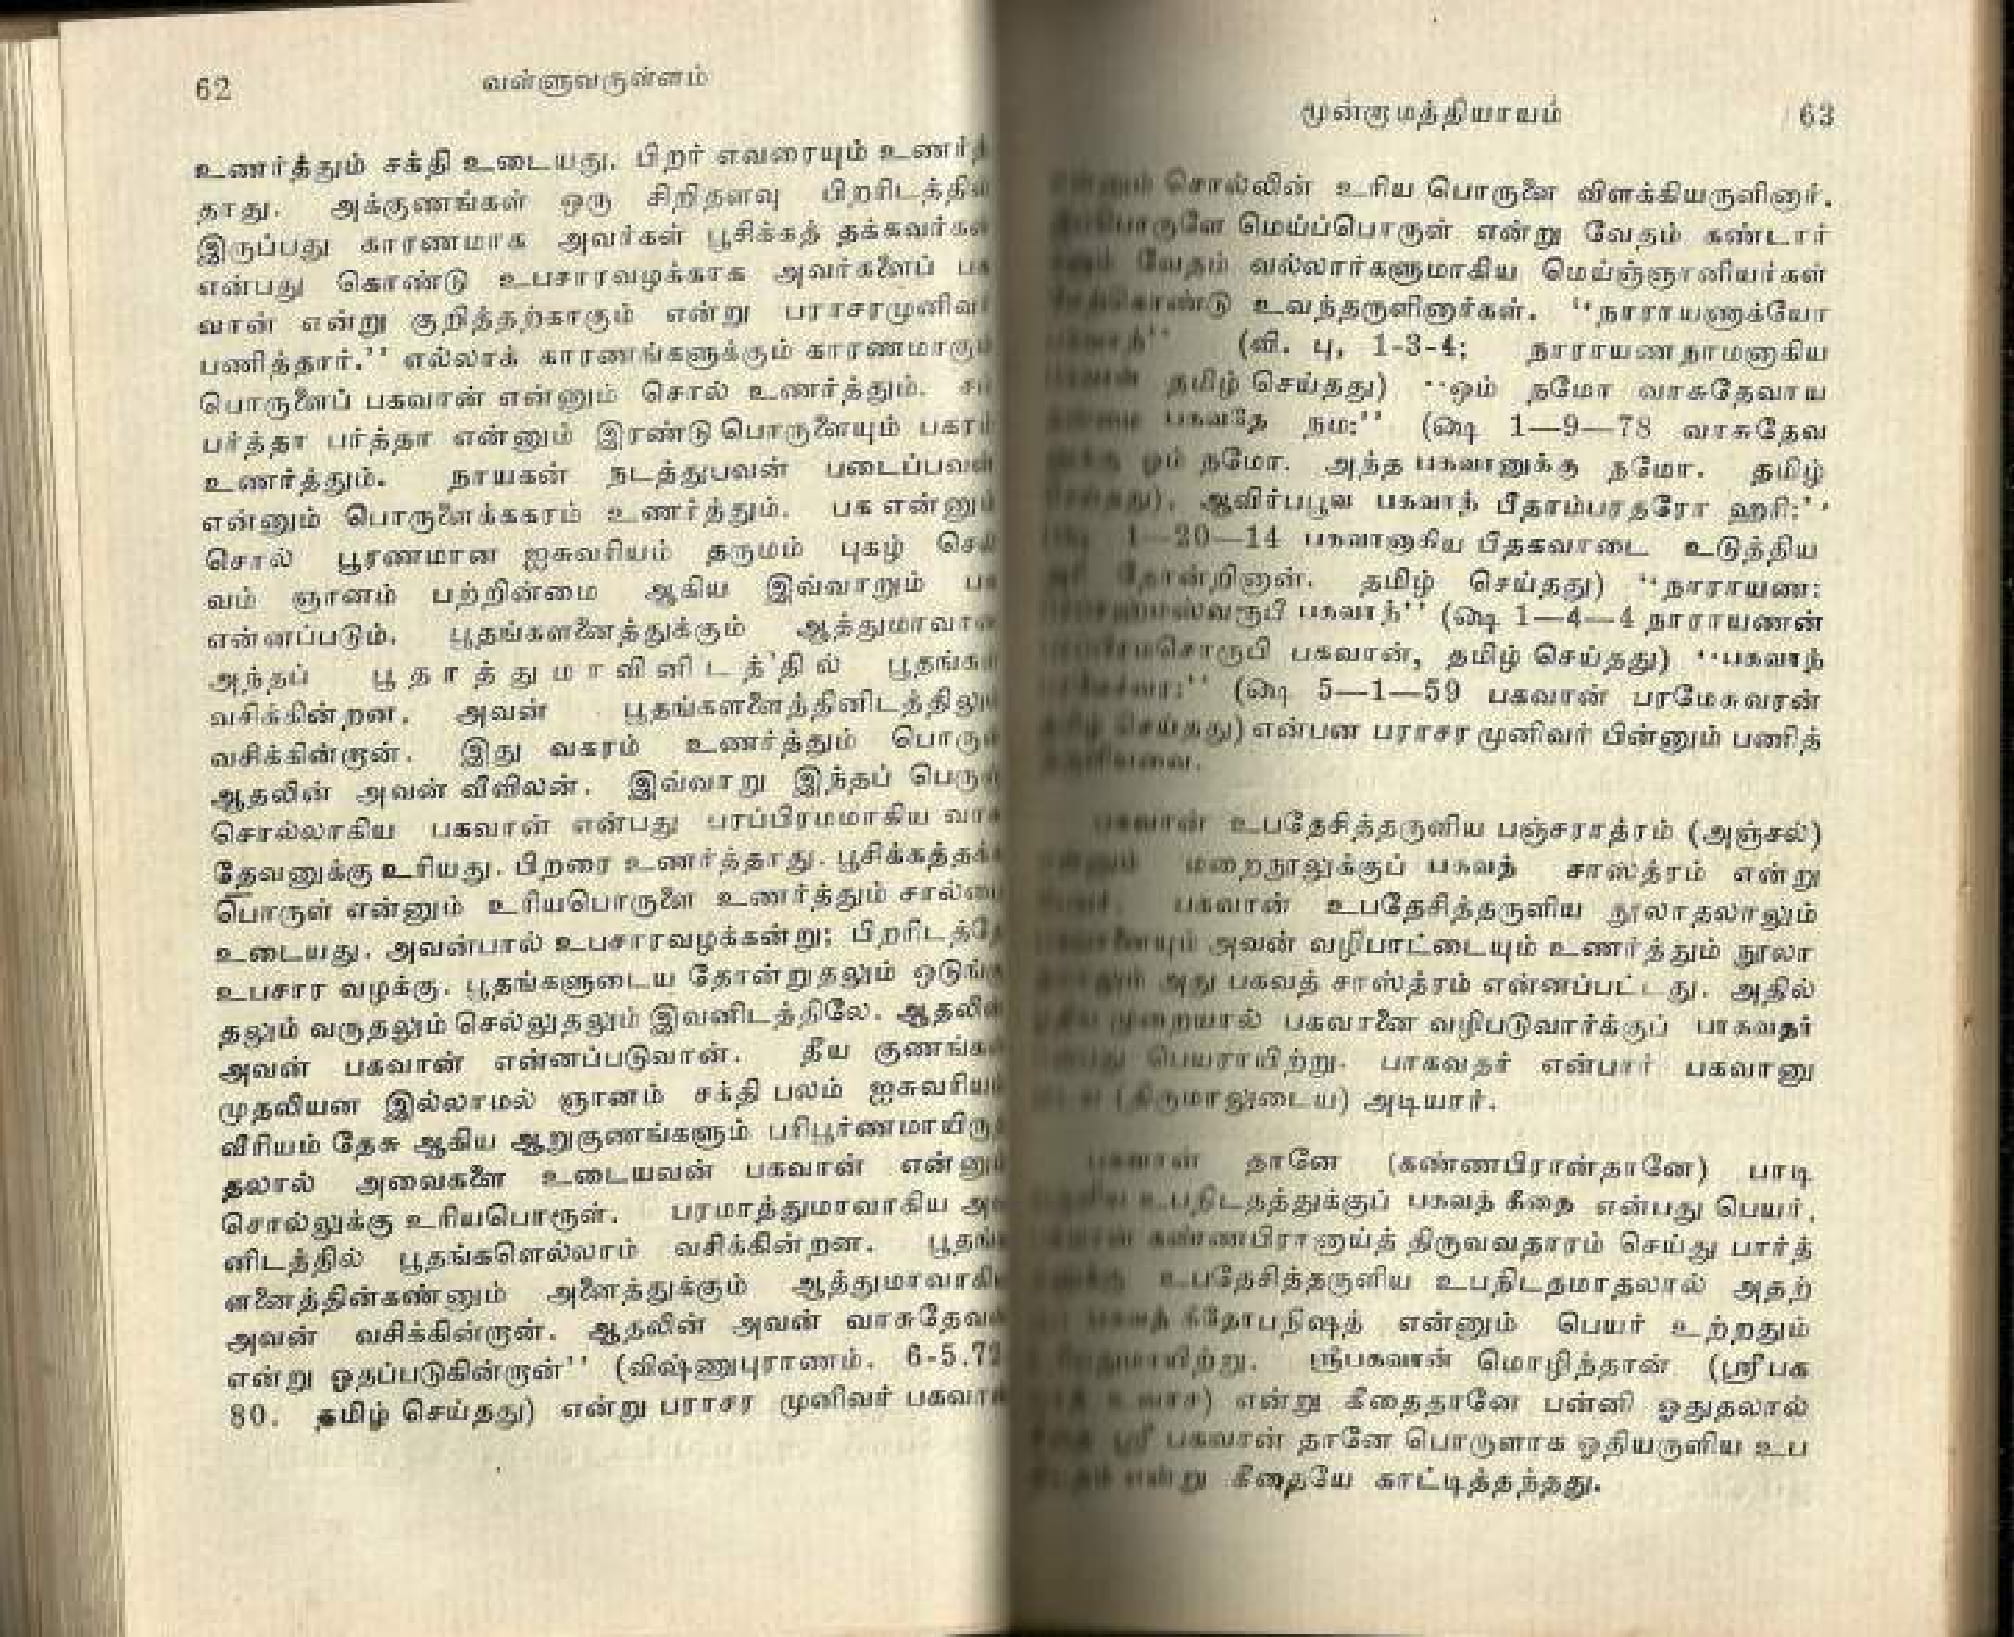 62 வள்ளுவருள்ளம்
உணர்த்தும் சக்தி உடையது. பிறர் எவரையும் உணர்த்
தாது. அக்குணங்கள் ஒரு சிறிதளவு பிறரிடத்தில்
இருப்பது காரணமாக அவர்கள் பூசிக்கத் தக்கவர்கள்
என்பது கொண்டு உபசாரவழக்காக அவர்களைப் பக
வான் என்று குறித்தற்காகும் என்று பராசரமுனிவர்
பணித்தார்.'' எல்லாக் காரணங்களுக்கும் காரணமாகும்
பொருளைப் பகவான் என்னும் சொல் உணர்த்தும்.
பர்த்தா பர்த்தா என்னும் இரண்டு பொருளையும் பகரம்
உணர்த்தும். நாயகன் நடத்துபவன் படைப்பவன்
என்னும் பொருளைக்ககரம் உணர்த்தும். பக என்னும்
சொல் பூரணமான ஐசுவரியம் தருமம் புகழ் செல்
வம் ஞானம் பற்றின்மை ஆகிய இவ்வாறும் பக
என்னப்படும். பூதங்களனைத்துக்கும் ஆத்துமாவான
அந்தப் பூதாத்துமாவினிடத்தில் பூதங்கள்
வசிக்கின்றன. அவன் பூதங்களளைத்தினிடத்திலும்
வசிக்கின்றான். இது வகரம் உணர்த்தும் பொருள்
ஆதலின் அவன் வீவிலன். இவ்வாறு இந்தப் பெருஞ்
சொல்லாகிய பகவான் என்பது பரப்பிரமமாகிய வாசு
தேவனுக்கு உரியது. பிறரை உணர்த்தாது. பூசிக்கத்தக்க
பொருள் என்னும் உரியபொருளை உணர்த்தும் சால்பை
உடையது. அவன்பால் உபசாரவழக்கன்று; பிறரிடத்தே
உபசார வழக்கு. பூதங்களுடைய தோன்றுதலும் ஒடுங்கு
தலும் வருதலும் செல்லுதலும் இவனிடத்திலே. ஆதலின்
அவன் பகவான் என்னப்படுவான். தீய குணங்கள்
முதலியன இல்லாமல் ஞானம் சக்தி பலம் ஐசுவரியம்
வீரியம் தேசு ஆகிய ஆறுகுணங்களும் பரிபூர்ணமாயிருத்
தலால் அவைகளை உடையவன் பகவான் என்னும்
சொல்லுக்கு உரியபொருள். பரமாத்துமாவாகிய அவ
னிடத்தில் பூதங்களெல்லாம் வசிக்கின்றன. பூதங்க
ளனைத்தின்கண்ணும் அனைத்துக்கும் ஆத்துமாவாகிய
அவன் வசிக்கின்றான். ஆதலின் அவன் வாசுதேவன்
என்று ஓதப்படுகின்றான்'' (விஷ்ணுபுராணம். 6-5.72
80. தமிழ் செய்தது) என்று பராசர முனிவர் பகவான்
மூன்றாமத்தியாயம் 63
என்னும் சொல்லின் உரிய பொருளை விளக்கியருளினார்.
மெய்ப்பொருள் என்று வேதம் கண்டார்
வேதம் வல்லார்களுமாகிய மெய்ஞ்ஞானியர்கள்
உவந்தருளினார்கள். ''நாராயணாக்யோ
(வி. பு. 1-3-4; நாராயணநாமனாகிய
பகவான் தமிழ் செய்தது) ''ஓம் நமோ வாசுதேவாய
பகவதே நம:'' (ஷை 1—9—78 வாசுதேவ
னுக்கு ஓம் நமோ. அந்த பகவானுக்கு நமோ. தமிழ்
செய்தது). ஆவிர்பபூவ பகவாந் பீதாம்பரதரோ ஹரி:''
1—20—14 பகவானாகிய பீதகவாடை உடுத்திய
அரி தோன்றினான். தமிழ் செய்தது) ''நாராயண:
பகவாந்'' (ஷை 1—4—4 நாராயணன்
பகவான், தமிழ் செய்தது) ''பகவாந்
(ஷை 5—1—59 பகவான் பரமேசுவரன்
தமிழ் செய்தது) என்பன பராசர முனிவர் பின்னும் பணித்
தருளியவை.
பகவான் உபதேசித்தருளிய பஞ்சராத்ரம் (அஞ்சல்)
என்னும் மறைநூலுக்குப் பகவத் சாஸ்த்ரம் என்று
பெயர். பகவான் உபதேசித்தருளிய நூலாதலாலும்
பகவானையும் அவன் வழிபாட்டையும் உணர்த்தும் நூலா
தலாலும் அது பகவத் சாஸ்த்ரம் என்னப்பட்டது. அதில்
முறையால் பகவானை வழிபடுவார்க்குப் பாகவதர்
என்பது பெயராயிற்று. பாகவதர் என்பார் பகவானு
டைய (திருமாலுடைய) அடியார்.
பகவான் தானே (கண்ணபிரான்தானே) பாடி
யருளிய உபநிடதத்துக்குப் பகவத் கீதை என்பது பெயர்.
பகவான் கண்ணபிரானாய்த் திருவவதாரம் செய்து பார்த்
தனுக்கு உபதேசித்தருளிய உபநிடதமாதலால் அதற்
குப் பகவத் கீதோபநிஷத் என்னும் பெயர் உற்றதும்
ஸ்ரீபகவான் மொழிந்தான் (ஸ்ரீபக
வாந் உவாச) என்று கீதைதானே பன்னி ஓதுதலால்
கீதை ஸ்ரீ பகவான் தானே பொருளாக ஓதியருளிய உப
நிடதம் என்று கீதையே காட்டித்தந்தது.